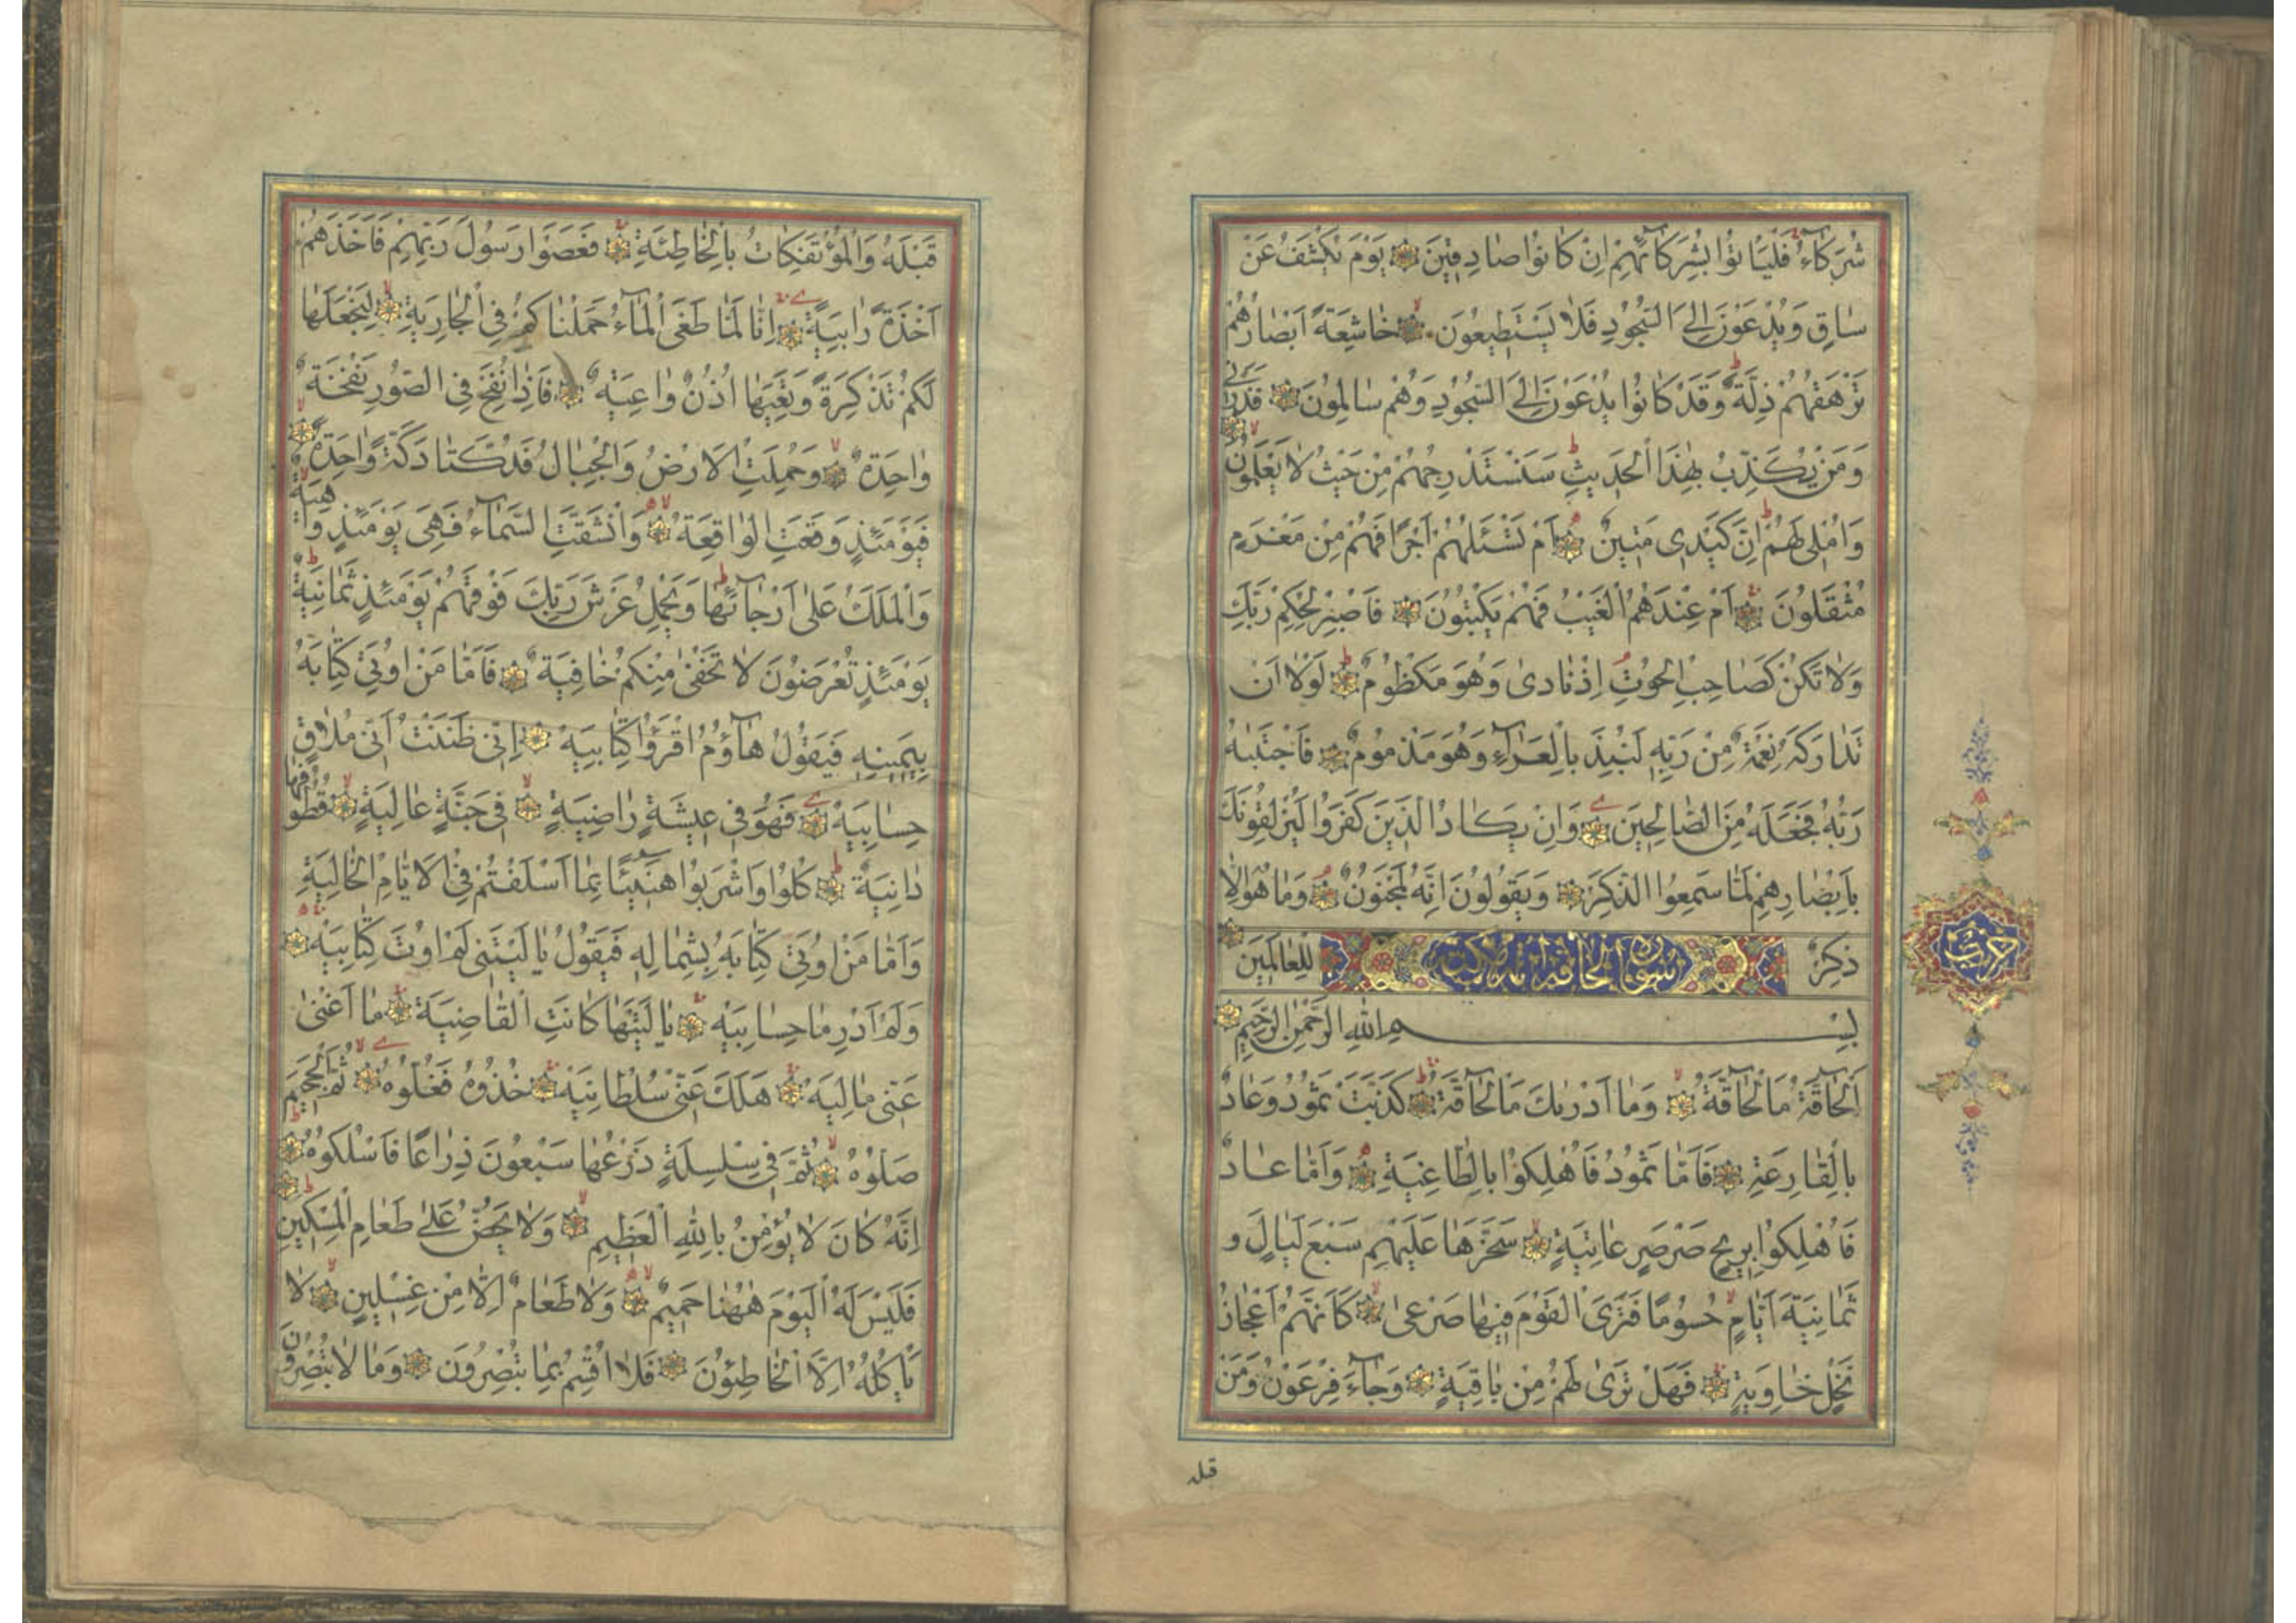 شُرَكَاءُ فَلْيَأْتُوا بِشُرَكَائِهِمْ اِنْ كَانُوا صَادِقِينَ يَوْمَ يُكْشَفُ عَنْ
سَاقٍ وَيُدْعَوْنَ اِلَى السُّجُودِ فَلَا يَسْتَطِيعُونَ خَاشِعَةً اَبْصَارُهُمْ
تَرْهَقُهُمْ ذِلَّةٌ وَقَدْ كَانُوا يُدْعَوْنَ اِلَى السُّجُودِ وَهُمْ سَالِمُونَ فَذَرْنِي
وَمَنْ يُكَذِّبُ بِهٰذَا الْحَدِيثِ سَنَسْتَدْرِجُهُمْ مِنْ حَيْثُ لَا يَعْلَمُونَ
وَاُمْلِى لَهُمْ اِنَّ كَيْدِى مَتِينٌ اَمْ تَسْـَٔلُهُمْ اَجْرًا فَهُمْ مِنْ مَغْرَمٍ
مُثْقَلُونَ اَمْ عِنْدَهُمُ الْغَيْبُ فَهُمْ يَكْتُبُونَ فَاصْبِرْ لِحُكْمِ رَبِّكَ
وَلَا تَكُنْ كَصَاحِبِ الْحُوتِ اِذْ نَادٰى وَهُوَ مَكْظُومٌ لَوْلَا اَنْ
تَدَارَكَهُ نِعْمَةٌ مِنْ رَبِّهِ لَنُبِذَ بِالْعَرَاءِ وَهُوَ مَذْمُومٌ فَاجْتَبٰيهُ
رَبُّهُ فَجَعَلَهُ مِنَ الصَّالِحِينَ وَاِنْ يَكَادُ الَّذِينَ كَفَرُوا لَيُزْلِقُونَكَ
بِاَبْصَارِهِمْ لَمَّا سَمِعُوا الذِّكْرَ وَيَقُولُونَ اِنَّهُ لَمَجْنُونٌ وَمَا هُوَ اِلَّا
ذِكْرٌ لِلْعَالَمِينَ
سورة الحاقة مكية
بِسْمِ اللّٰهِ الرَّحْمٰنِ الرَّحِيمِ
اَلْحَاقَّةُ مَا الْحَاقَّةُ وَمَا اَدْرٰيكَ مَا الْحَاقَّةُ كَذَّبَتْ ثَمُودُ وَعَادٌ
بِالْقَارِعَةِ فَاَمَّا ثَمُودُ فَاُهْلِكُوا بِالطَّاغِيَةِ وَاَمَّا عَادٌ
فَاُهْلِكُوا بِرِيحٍ صَرْصَرٍ عَاتِيَةٍ سَخَّرَهَا عَلَيْهِمْ سَبْعَ لَيَالٍ وَ
ثَمَانِيَةَ اَيَّامٍ حُسُومًا فَتَرَى الْقَوْمَ فِيهَا صَرْعٰى كَاَنَّهُمْ اَعْجَازُ
نَخْلٍ خَاوِيَةٍ فَهَلْ تَرٰى لَهُمْ مِنْ بَاقِيَةٍ وَجَاءَ فِرْعَوْنُ وَمَنْ
قبله
حزب
قَبْلَهُ وَالْمُؤْتَفِكَاتُ بِالْخَاطِئَةِ فَعَصَوْا رَسُولَ رَبِّهِمْ فَاَخَذَهُمْ
اَخْذَةً رَابِيَةً اِنَّا لَمَّا طَغَى الْمَاءُ حَمَلْنَاكُمْ فِى الْجَارِيَةِ لِنَجْعَلَهَا
لَكُمْ تَذْكِرَةً وَتَعِيَهَا اُذُنٌ وَاعِيَةٌ فَاِذَا نُفِخَ فِى الصُّورِ نَفْخَةٌ
وَاحِدَةٌ وَحُمِلَتِ الْاَرْضُ وَالْجِبَالُ فَدُكَّتَا دَكَّةً وَاحِدَةً
فَيَوْمَئِذٍ وَقَعَتِ الْوَاقِعَةُ وَانْشَقَّتِ السَّمَاءُ فَهِىَ يَوْمَئِذٍ وَاهِيَةٌ
وَالْمَلَكُ عَلٰى اَرْجَائِهَا وَيَحْمِلُ عَرْشَ رَبِّكَ فَوْقَهُمْ يَوْمَئِذٍ ثَمَانِيَةٌ
يَوْمَئِذٍ تُعْرَضُونَ لَا تَخْفٰى مِنْكُمْ خَافِيَةٌ فَاَمَّا مَنْ اُوتِىَ كِتَابَهُ
بِيَمِينِهِ فَيَقُولُ هَاؤُمُ اقْرَؤُا كِتَابِيَهْ اِنِّى ظَنَنْتُ اَنِّى مُلَاقٍ
حِسَابِيَهْ فَهُوَ فِى عِيشَةٍ رَاضِيَةٍ فِى جَنَّةٍ عَالِيَةٍ قُطُوفُهَا
دَانِيَةٌ كُلُوا وَاشْرَبُوا هَنِيئًا بِمَا اَسْلَفْتُمْ فِى الْاَيَّامِ الْخَالِيَةِ
وَاَمَّا مَنْ اُوتِىَ كِتَابَهُ بِشِمَالِهِ فَيَقُولُ يَا لَيْتَنِى لَمْ اُوتَ كِتَابِيَهْ
وَلَمْ اَدْرِ مَا حِسَابِيَهْ يَا لَيْتَهَا كَانَتِ الْقَاضِيَةَ مَا اَغْنٰى
عَنِّى مَالِيَهْ هَلَكَ عَنِّى سُلْطَانِيَهْ خُذُوهُ فَغُلُّوهُ ثُمَّ الْجَحِيمَ
صَلُّوهُ ثُمَّ فِى سِلْسِلَةٍ ذَرْعُهَا سَبْعُونَ ذِرَاعًا فَاسْلُكُوهُ
اِنَّهُ كَانَ لَا يُؤْمِنُ بِاللّٰهِ الْعَظِيمِ وَلَا يَحُضُّ عَلٰى طَعَامِ الْمِسْكِينِ
فَلَيْسَ لَهُ الْيَوْمَ هٰهُنَا حَمِيمٌ وَلَا طَعَامٌ اِلَّا مِنْ غِسْلِينٍ لَا
يَأْكُلُهُ اِلَّا الْخَاطِئُونَ فَلَا اُقْسِمُ بِمَا تُبْصِرُونَ وَمَا لَا تُبْصِرُونَ